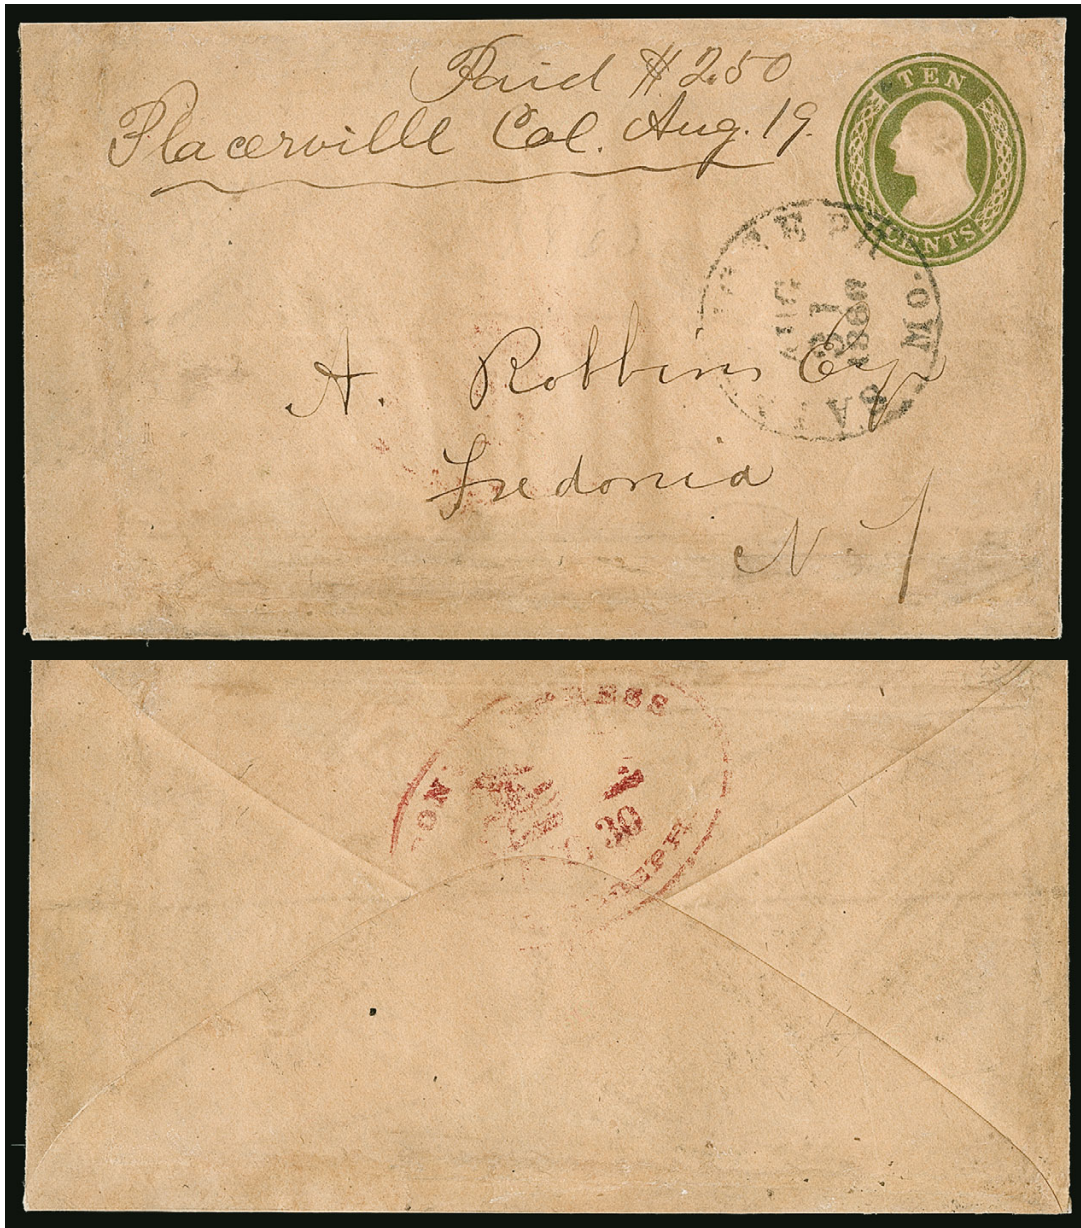 Paid $2.50
Placerville Cal. Aug. 19.
TEN
CENTS
MO.
AUG
31
A. Robbins Esq
Fredonia
N Y
PRESS
30